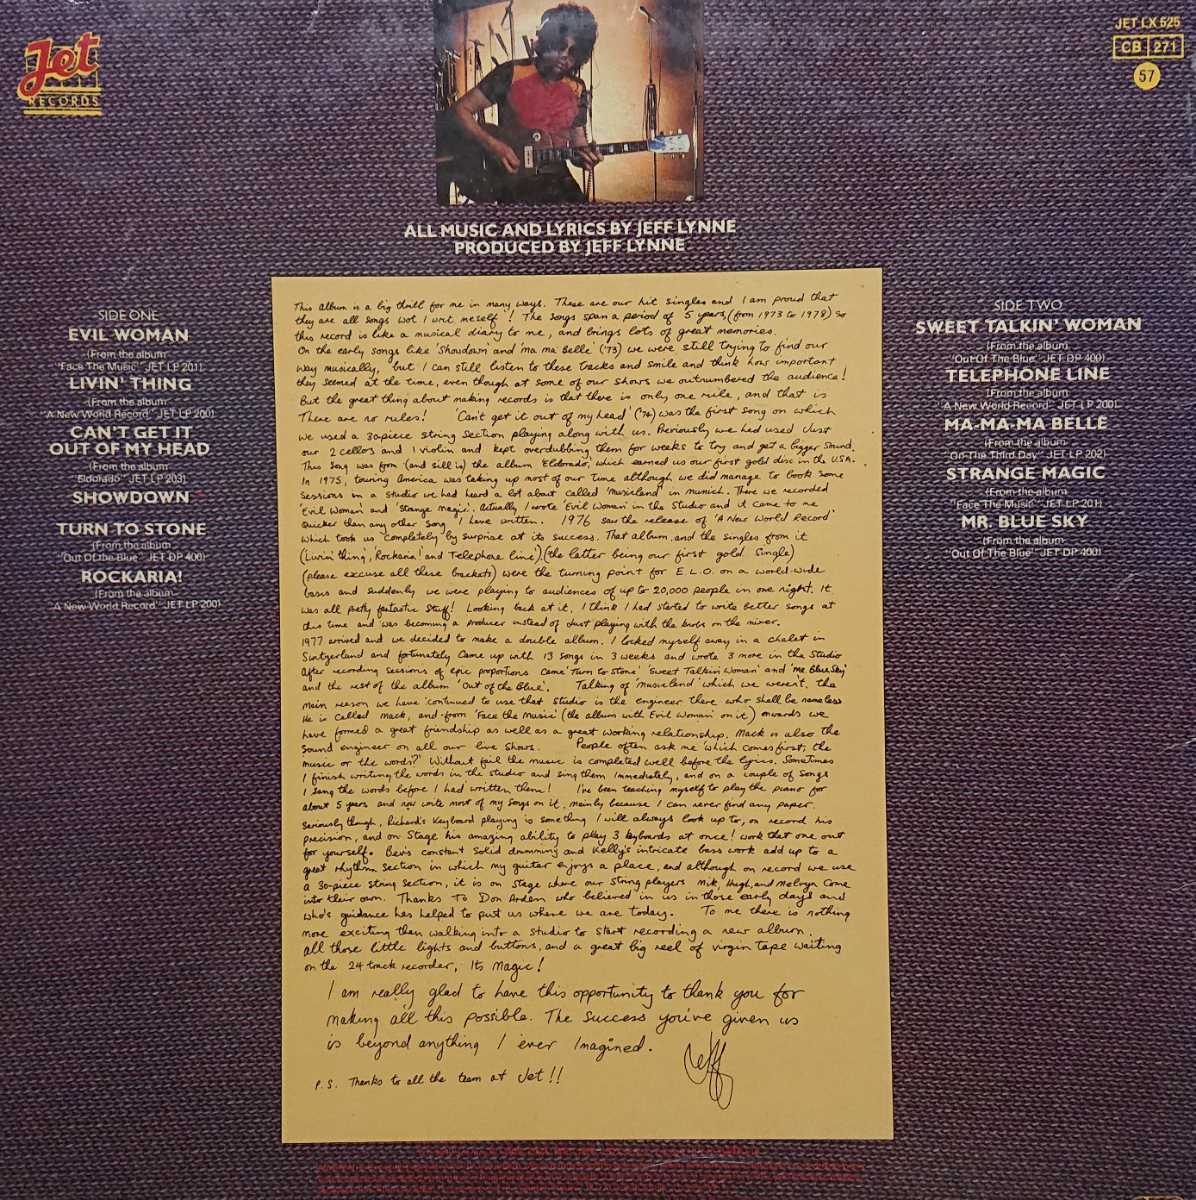 Jet
RECORDS
JET LX 525
CB 271
57
ALL MUSIC AND LYRICS BY JEFF LYNNE
PRODUCED BY JEFF LYNNE
SIDE ONE
EVIL WOMAN
(From the album
"Face The Music" JET LP 201)
LIVIN' THING
(From the album
"A New World Record" JET LP 200)
CAN'T GET IT
OUT OF MY HEAD
(From the album
"Eldorado" JET LP 203)
SHOWDOWN
TURN TO STONE
(From the album
"Out Of the Blue" JET DP 400)
ROCKARIA!
(From the album
"A New World Record" JET LP 200)
This album is a big thrill for me in many ways. These are our hit singles and I am proud that
they are all songs wot I writ meself! The songs span a period of 5 years, (from 1973 to 1978) so
this record is like a musical diary to me, and brings lots of great memories.
On the early songs like 'Showdown' and 'ma ma Belle' ('73) we were still trying to find our
way musically, but I can still listen to these tracks and smile and think how important
they seemed at the time, even though at some of our shows we outnumbered the audience!
But the great thing about making records is that there is only one rule, and that is
There are no rules! 'Can't get it out of my head' ('74) was the first song on which
we used a 30 piece string section playing along with us. Previously we had used Just
our 2 cellos and 1 violin and kept overdubbing them for weeks to try and get a bigger sound.
This song was from (and still is) the album 'Eldorado', which earned us our first gold disc in the U.S.A.
In 1975, touring America was taking up most of our time although we did manage to book some
sessions in a studio we had heard a lot about called 'musicland' in munich. There we recorded
'Evil Woman' and 'Strange Magic'. Actually I wrote 'Evil Woman' in the Studio and it came to me
quicker than any other song I have written. 1976 saw the release of 'A New World Record'
which took us completely by surprise at its success. That album, and the singles from it
(Livin' thing', Rockaria! and Telephone line'), (the latter being our first gold single)
(please excuse all these brackets) were the turning point for E.L.O. on a world-wide
basis and suddenly we were playing to audiences of up to 20,000 people in one night. It
was all pretty fantastic stuff! Looking back at it, I think I had started to write better songs at
this time and was becoming a Producer instead of Just playing with the knobs on the mixer.
1977 arrived and we decided to make a double album. I locked myself away in a chalet in
Switzerland and fortunately came up with 13 songs in 3 weeks and wrote 3 more in the Studio
After recording sessions of epic proportions came 'Turn to Stone' 'Sweet Talkin' Woman' and 'Mr Blue Sky'
and the rest of the album 'Out of the Blue'. Talking of 'musicland' which we weren't, the
main reason we have continued to use that Studio is the engineer there who shall be nameless
He is called Mack, and from 'Face the Music' (the album with Evil Woman on it) onwards we
have formed a great friendship as well as a great working relationship. Mack is also the
sound engineer on all our live shows. People often ask me 'which comes first, the
music or the words?' Without fail the music is completed well before the lyrics. Sometimes
I finish writing the words in the studio and sing them immediately, and on a couple of songs
I sang the words before I had written them! I've been teaching myself to play the piano for
about 5 years and now write most of my songs on it, mainly because I can never find any paper.
Seriously though, Richard's keyboard playing is something I will always look up to, on record his
precision, and on Stage his amazing ability to play 3 keyboards at once! work that one out
for yourself. Bev's constant solid drumming and Kelly's intricate bass work add up to a
great rhythm section in which my guitar enjoys a place, and although on record we use
a 30-piece string section, it is on stage where our string players Mik, Hugh, and Melvyn come
into their own. Thanks to Don Arden who believed in us in those early days and
who's guidance has helped to put us where we are today. To me there is nothing
more exciting than walking into a studio to start recording a new album,
all those little lights and buttons, and a great big reel of virgin tape waiting
on the 24 track recorder, Its Magic!
I am really glad to have this opportunity to thank you for
making all this possible. The success you've given us
is beyond anything I ever imagined.
Jeff
P.S. Thanks to all the team at Jet!!
SIDE TWO
SWEET TALKIN' WOMAN
(From the album
"Out Of The Blue" JET DP 400)
TELEPHONE LINE
(From the album
"A New World Record" JET LP 200)
MA-MA-MA BELLE
(From the album
"On The Third Day" JET LP 202)
STRANGE MAGIC
(From the album
"Face The Music" JET LP 201)
MR. BLUE SKY
(From the album
"Out Of The Blue" JET DP 400)